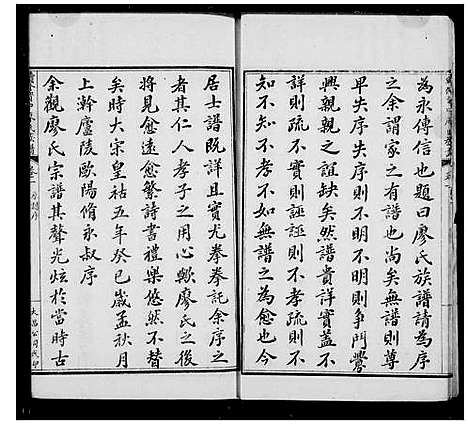 為永傳信也題曰廖氏族譜請為序
之余謂家之有譜也尚矣無譜則尊
卑失序失序則不明不明則爭鬥釁
興親親之誼缺矣然譜詳實蓋不
詳則疏不實則誣誣則不信疏則不
知不知不孝不如無譜之為愈也今
居士譜既詳且實尤拳拳託余序之
者其仁人孝子之用心歟廖氏之後
將見愈遠愈繁詩書禮樂悠然不替
矣時大宋皇祐五年癸巳歲孟秋月
上澣廬陵歐陽脩永叔序
余觀廖氏宗譜其聲光炫於當時古